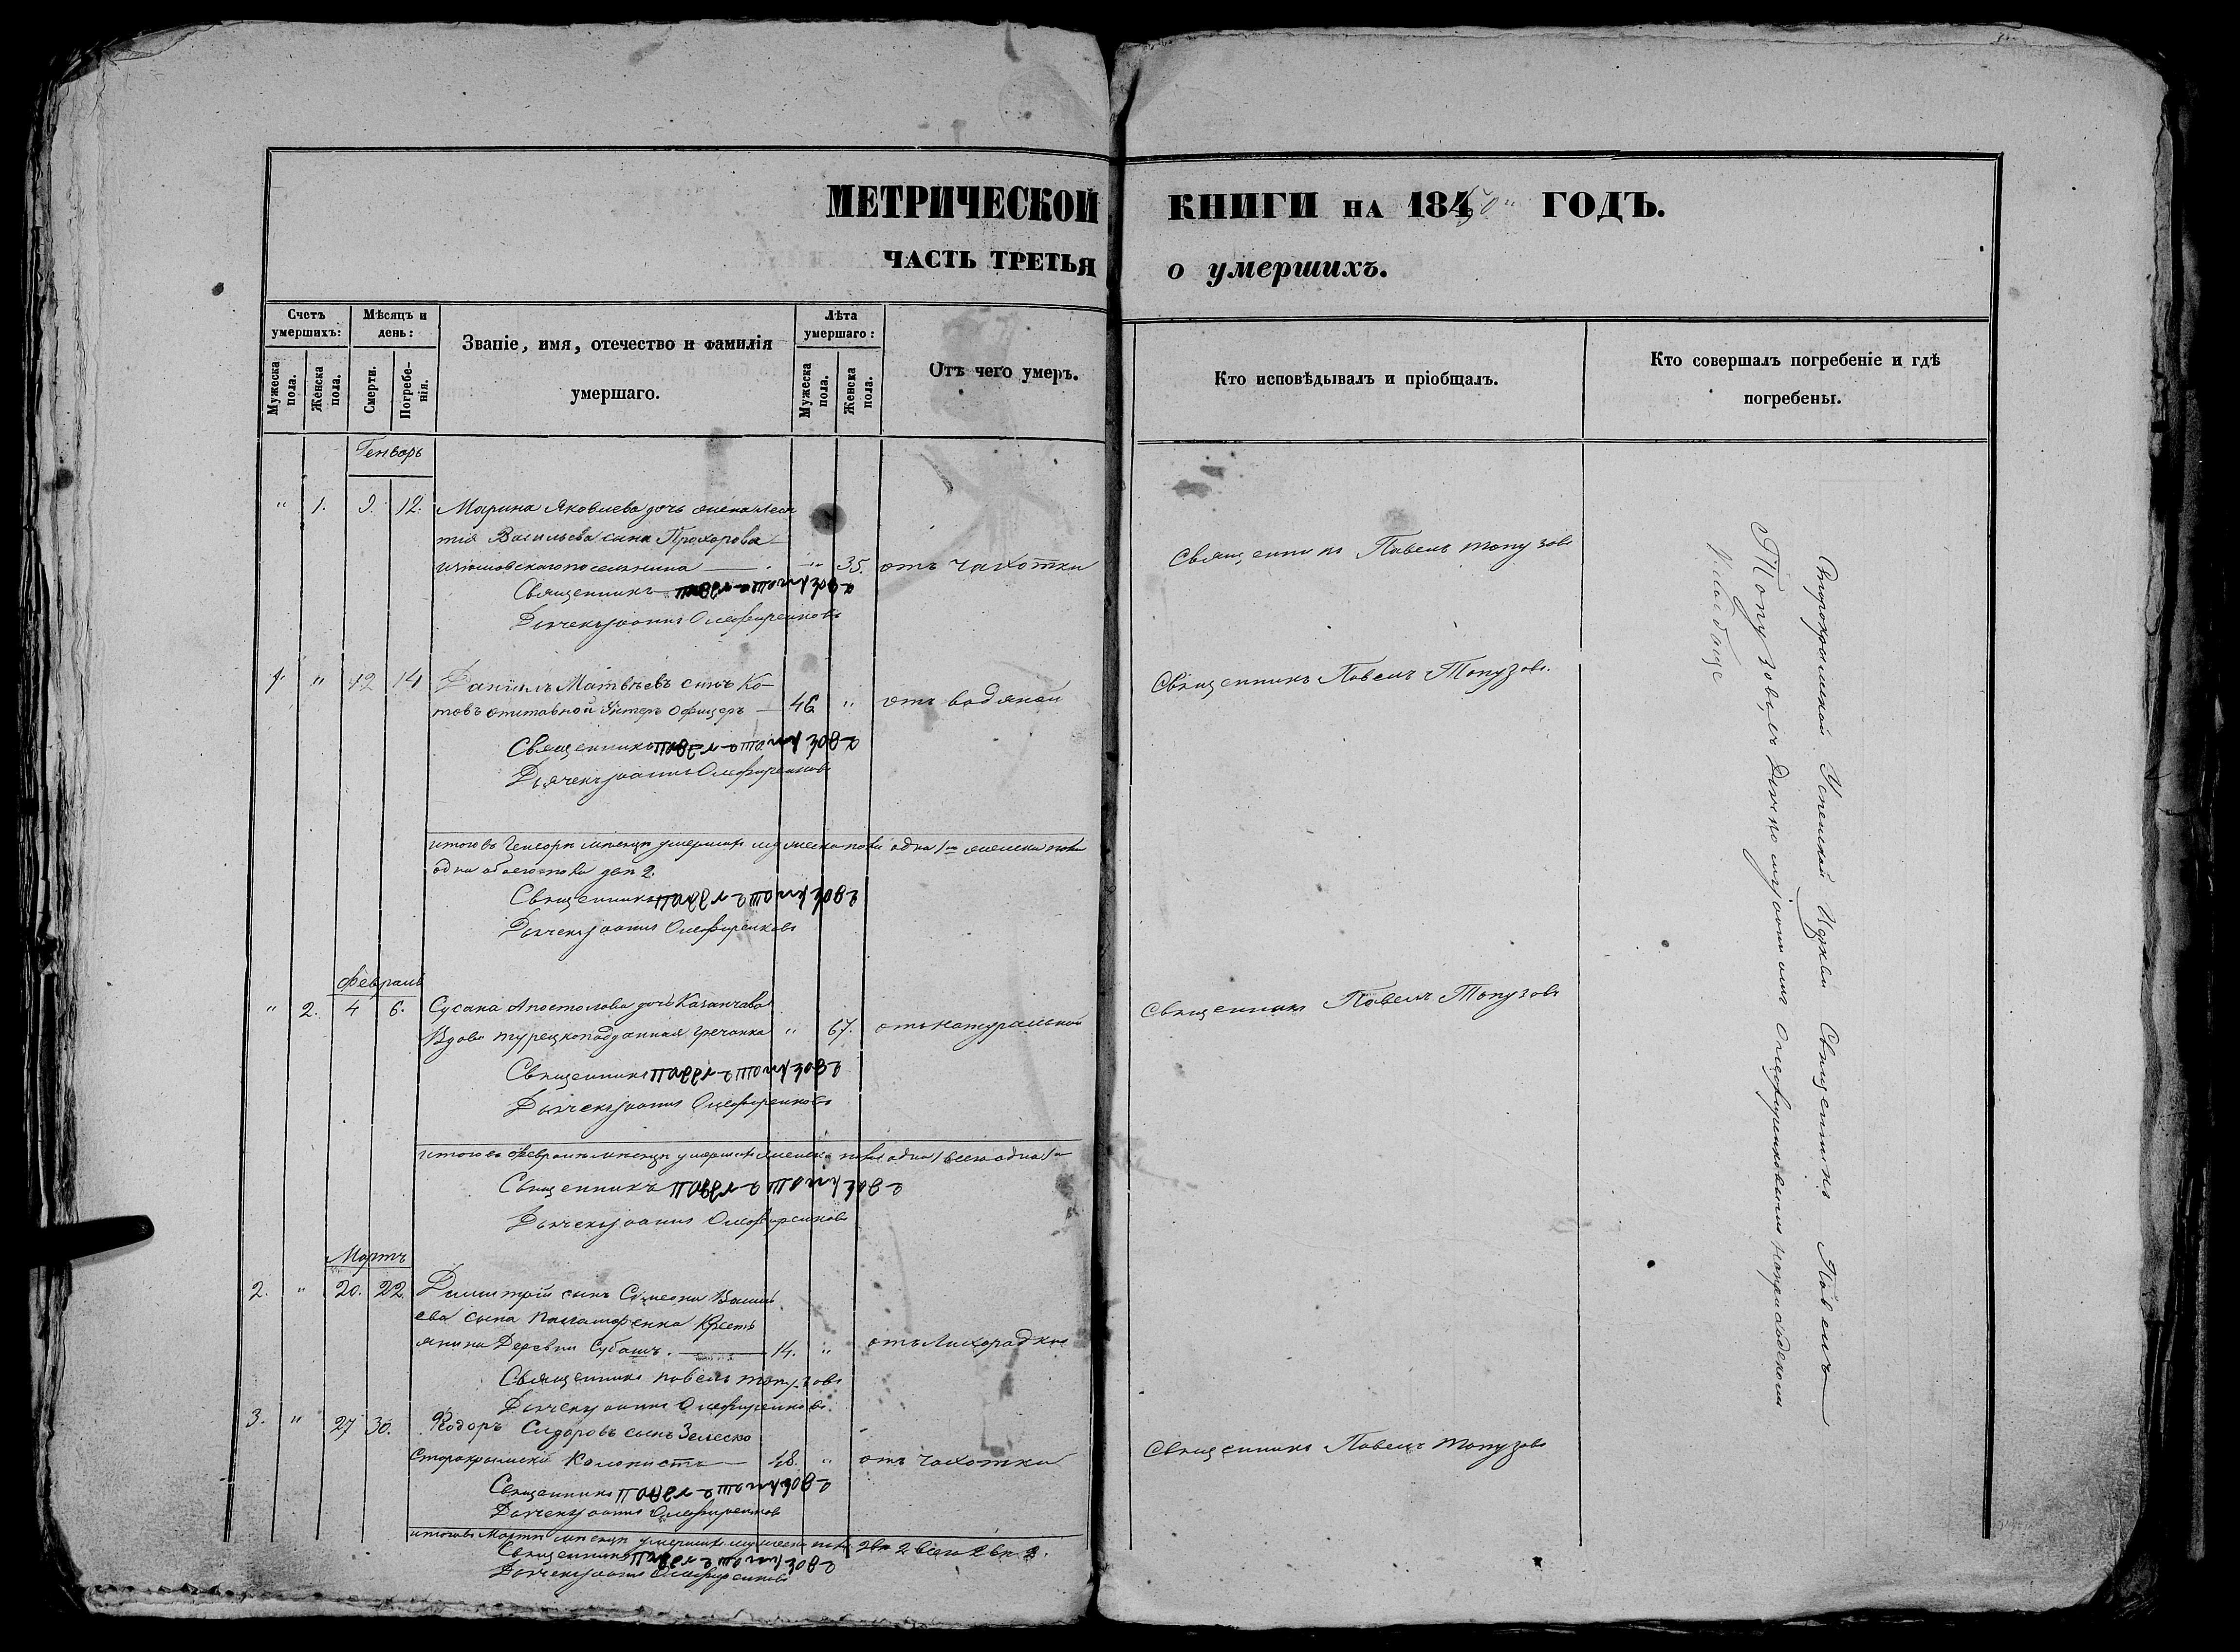 МЕТРИЧЕСКОЙ КНИГИ НА 1850 ГОДЪ.
ЧАСТЬ ТРЕТЬЯ о умершихъ.
Счетъ умершихъ:
Мужеска пола.
Женска пола.
Мѣсяцъ и день:
Смерти.
Погребенія.
Званіе, имя, отечество и фамилія
умершаго.
Лѣта умершаго:
Мужеска пола.
Женска пола.
Отъ чего умеръ.
Кто исповѣдывалъ и пріобщалъ.
Кто совершалъ погребеніе и гдѣ
погребены.
Генварь
" 1. 9. 12. Марина Яковлева дочь жена
Васильева сына Прохорова
поселянина " 35. отъ чахотки Священникъ Павелъ Топузовъ
Священникъ Павелъ Топузовъ
Дьячекъ Іоаннъ Олефиренковъ
1. " 12 14 Даніилъ Матвѣевъ сынъ Ко-
товъ отставной Унтеръ Офицеръ 46 " отъ водяной Священникъ Павелъ Топузовъ.
Священникъ Павелъ Топузовъ
Дьячекъ Іоаннъ Олефиренковъ
итого въ Генваря мѣсяцѣ умершихъ мужеска пола одна 1 женска пола
одна обоего пола двѣ 2.
Священникъ Павелъ Топузовъ
Дьячекъ Іоаннъ Олефиренковъ
Февраль
" 2. 4 6. Сусана Апостолова дочь Казанчева
Вдова турецкоподданная гречанка " 67. отъ натуральной Священникъ Павелъ Топузовъ
Священникъ Павелъ Топузовъ
Дьячекъ Іоаннъ Олефиренковъ
итого въ Февралѣ мѣсяцѣ умершихъ женска пола одна 1 всего одна 1
Священникъ Павелъ Топузовъ
Дьячекъ Іоаннъ Олефиренковъ
Мартъ
2. " 20. 22. Димитрій сынъ Симеона Василь
ева сына Кресть
янина Деревни Субашъ. 14. " отъ Лихорадки
Священникъ Павелъ Топузовъ
Дьячекъ Іоаннъ Олефиренковъ.
3. " 27 30. Ѳодоръ Сидоровъ сынъ Зелеско
Старокрымскій Колонистъ 48. " отъ чахотки Священникъ Павелъ Топузовъ
Священникъ Павелъ Топузовъ
Дьячекъ Іоаннъ Олефиренковъ
итого въ Мартѣ мѣсяцѣ умершихъ мужеска пола два 2 всего два 2.
Священникъ Павелъ Топузовъ
Дьячекъ Іоаннъ Олефиренковъ
Старокрымской Успенской Церкви Священникъ Павелъ
Топузовъ съ Дьячкомъ Іоанномъ Олефиренковымъ на приходскомъ
Кладбище